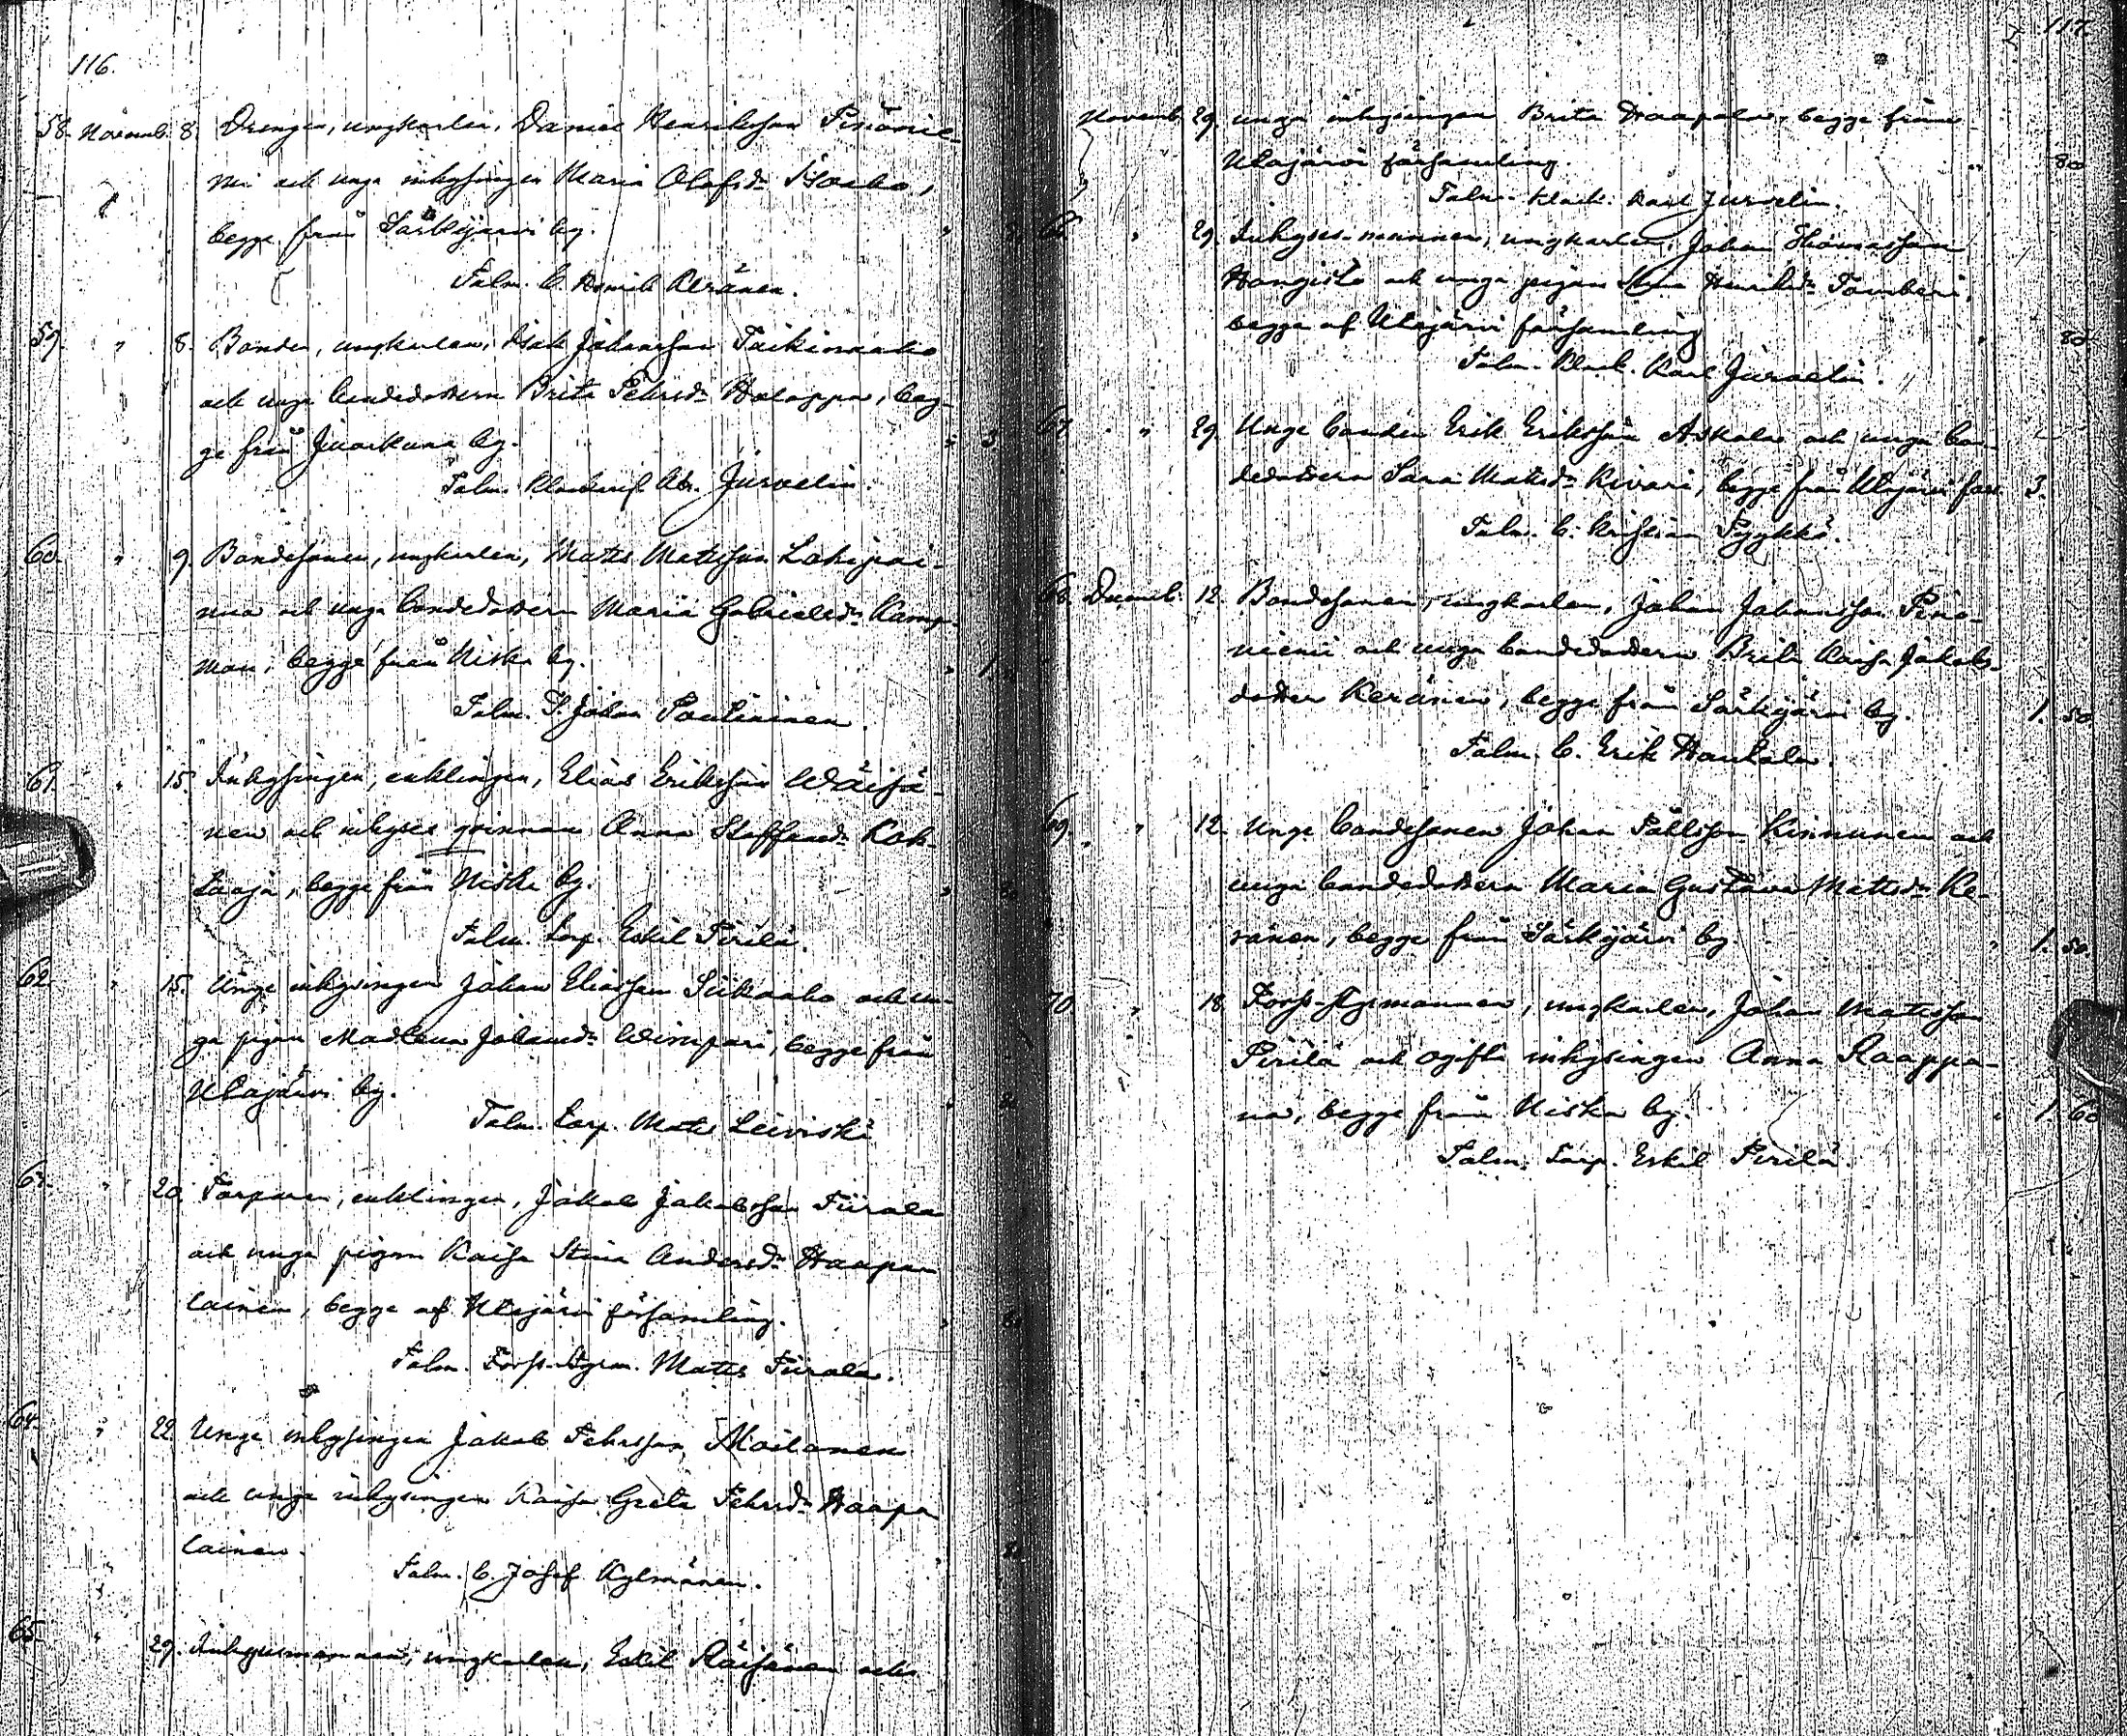 116.
58. Novemb. 8. Drengen, ungkarlen, Daniel Henriksson Pinönie-
mi och unga inhysingen Maria Olofsdr Kaako,
begge från Särkijärvi by.
Talm. b. Henrik Keränen.
59. " 8. Bonden, ungkarlen, Isak Johansson Taikinaaho
och unga bondedottern Brita Pehrsdr Halappa, beg-
ge från Jaakuna by. " 3
Talm. Klock. Ab. Jurvelin.
60. " 9. Bondesonen, ungkarlen, Mats Matsson Lohipai-
nua och unga bondedottern Maria Gabrielsdr Kamp-
man, begge från Niska by. " 1.
Talm. b. Johan Pouliainen.
61. " 15. Inhysingen, enklingen, Elias Eriksson Wäisä-
nen och inhyses qvinnan Anna Staffansdr Kok-
taaja, begge från Niska by. "
Talm. torp. Eskil Pirilä.
62. " 15. Unge inhysingen Johan Eliasson Siikaaho och un-
ga pigan Madlena Johansdr Wimpari, begge från
Uleåjärvi by. "
Talm. torp. Mats Leiviskä
63. " 20. Torparen, enklingen, Jakob Jakobsson Tiirala
och unga pigan Kaisa Stina Andersdr Haapa-
lainen, begge af Ulajärvi församling. "
Talm. Forss-Styrm. Matts Tiirala.
64. " 22. Unge inhysingen Jakob Pehrsson Moilanen
och unga inhysingen Kaisa Greta Pehrsdr Haapa
lainen.
Talm. b. Josef Kylmänen.
65. " 29. Inhysesmannen, ungkarlen, Eskil Räisänen och
117.
Novemb. 29. unga inhysingen Brita Haapala, begge från
Ulajärvi församling. " 80
Talm. Klock. Karl Jurvelin.
66. " 29. Inhyses-mannen, ungkarlen, Johan Thomasson
Hangisto och unga pigan Stina Henriksdr Tomberi,
begge af Ulajärvi församling " 80
Talm. Klock. Karl Jurvelin.
67. " 29. Unge bonden Erik Eriksson Askola och unga bon-
dedottern Sara Matsdr Kivari, begge från Ulajärvi förs. 3.
Talm. b. Kristian Pyykkö.
68. Decemb. 12. Bondesonen, ungkarlen, Johan Johansson Pinö-
niemi och unga bondedottern Brita Kaisa Jakobs-
dotter Keränen, begge från Särkijärvi by. 1. 50
Talm. b. Erik Haukala.
69. " 12. Unge bondesonen Johan Pållsson Kinnunen och
unga bondedottern Maria Gustava Mattsdr Ke-
ränen, begge från Särkijärvi by. " 1. 50
70 " 18. Forss-styrmannen, ungkarlen, Johan Matsson
Pirilä och ogifta inhysingen Anna Raappa-
na, begge från Niska by. " 1. 60
Talm. torp. Eskil Pirilä.